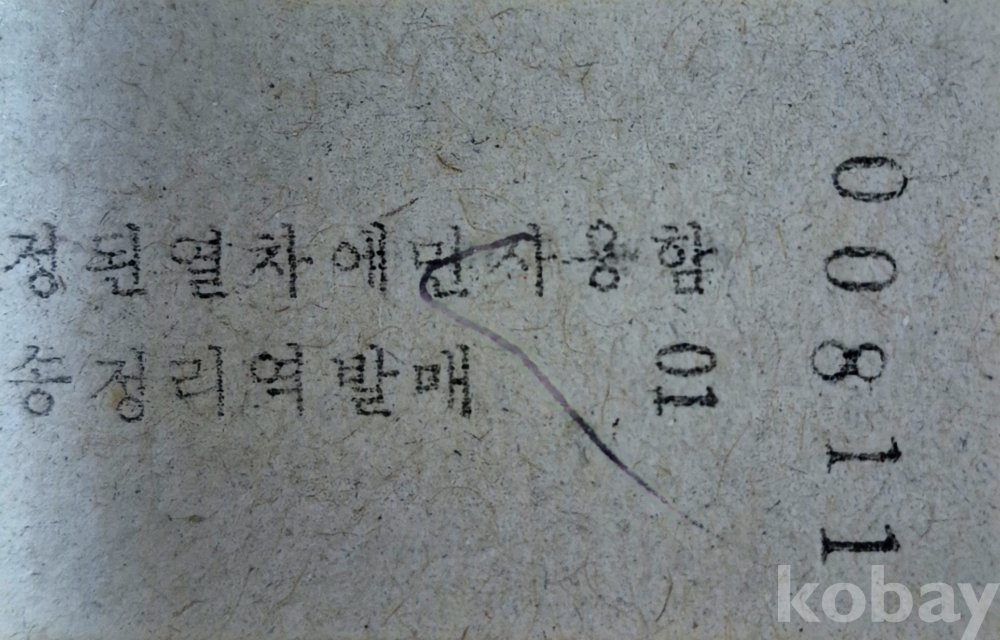 정된열차에만사용함
송정리역발매
01
00811
kobay